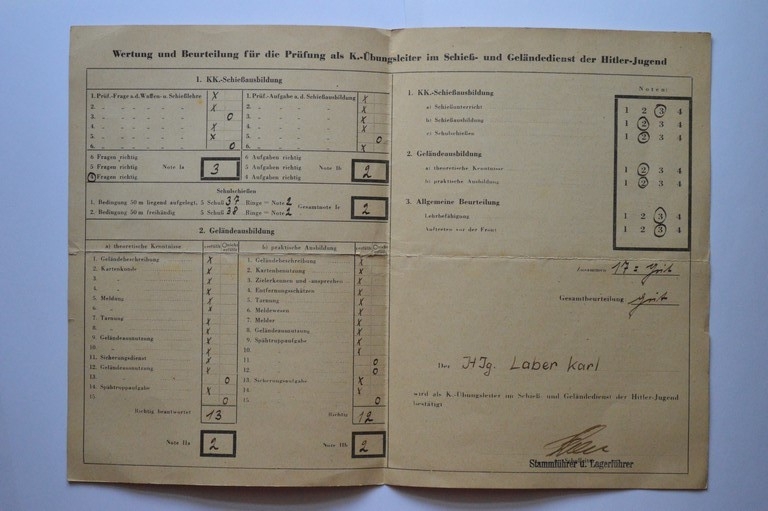 Wertung und Beurteilung für die Prüfung als K.-Übungsleiter im Schieß- und Geländedienst der Hitler-Jugend
1. KK.-Schießausbildung
1. Prüf.-Frage a.d. Waffen- u. Schießlehre x
2. " " " " " x
3. " " " " " 0
4. " " " " " x
5. " " " " " x
6. " " " " " 0
6 Fragen richtig
5 Fragen richtig Note Ia 3
4 Fragen richtig
1. Prüf.-Aufgabe a.d. Schießausbildung x
2. " " " " x
3. " " " " x
4. " " " " x
5. " " " " 0
6. " " " " x
6 Aufgaben richtig
5 Aufgaben richtig Note Ib 2
4 Aufgaben richtig
Schulschießen
1. Bedingung 50 m liegend aufgelegt, 5 Schuß 37 Ringe = Note 2
2. Bedingung 50 m freihändig 5 Schuß 38 Ringe = Note 2
Gesamtnote Ic 2
2. Geländeausbildung
a) theoretische Kenntnisse
erfüllt
1. Geländebeschreibung x
2. Kartenkunde x
3. " x
4. " x
5. Meldung x
6. " x
7. Tarnung x
8. " x
9. Geländeausnutzung x
10. " x
11. Sicherungsdienst x
12. Geländeausnutzung x
13. " 0
14. Spähtruppaufgabe x
15. 0
Richtig beantwortet 13
Note IIa 2
b) praktische Ausbildung
erfüllt
1. Geländebeschreibung x
2. Kartenbenutzung x
3. Zielerkennen und -ansprechen x
4. Entfernungsschätzen x
5. Tarnung x
6. Meldewesen x
7. Melder x
8. Geländeausnutzung x
9. Spähtruppaufgabe x
10. x
11. 0
12. 0
13. Sicherungsaufgabe x
14. x
15. 0
Richtig 12
Note IIb 2
Noten:
1. KK.-Schießausbildung
a) Schießunterricht 1 2 3 4
b) Schießausbildung 1 2 3 4
c) Schulschießen 1 2 3 4
2. Geländeausbildung
a) theoretische Kenntnisse 1 2 3 4
b) praktische Ausbildung 1 2 3 4
3. Allgemeine Beurteilung
Lehrbefähigung 1 2 3 4
Auftreten vor der Front 1 2 3 4
Zusammen 17 = Gut
Gesamtbeurteilung Gut
Der HJg. Laber Karl
wird als K.-Übungsleiter im Schieß- und Geländedienst der Hitler-Jugend
bestätigt
Stammführer u. Lagerführer